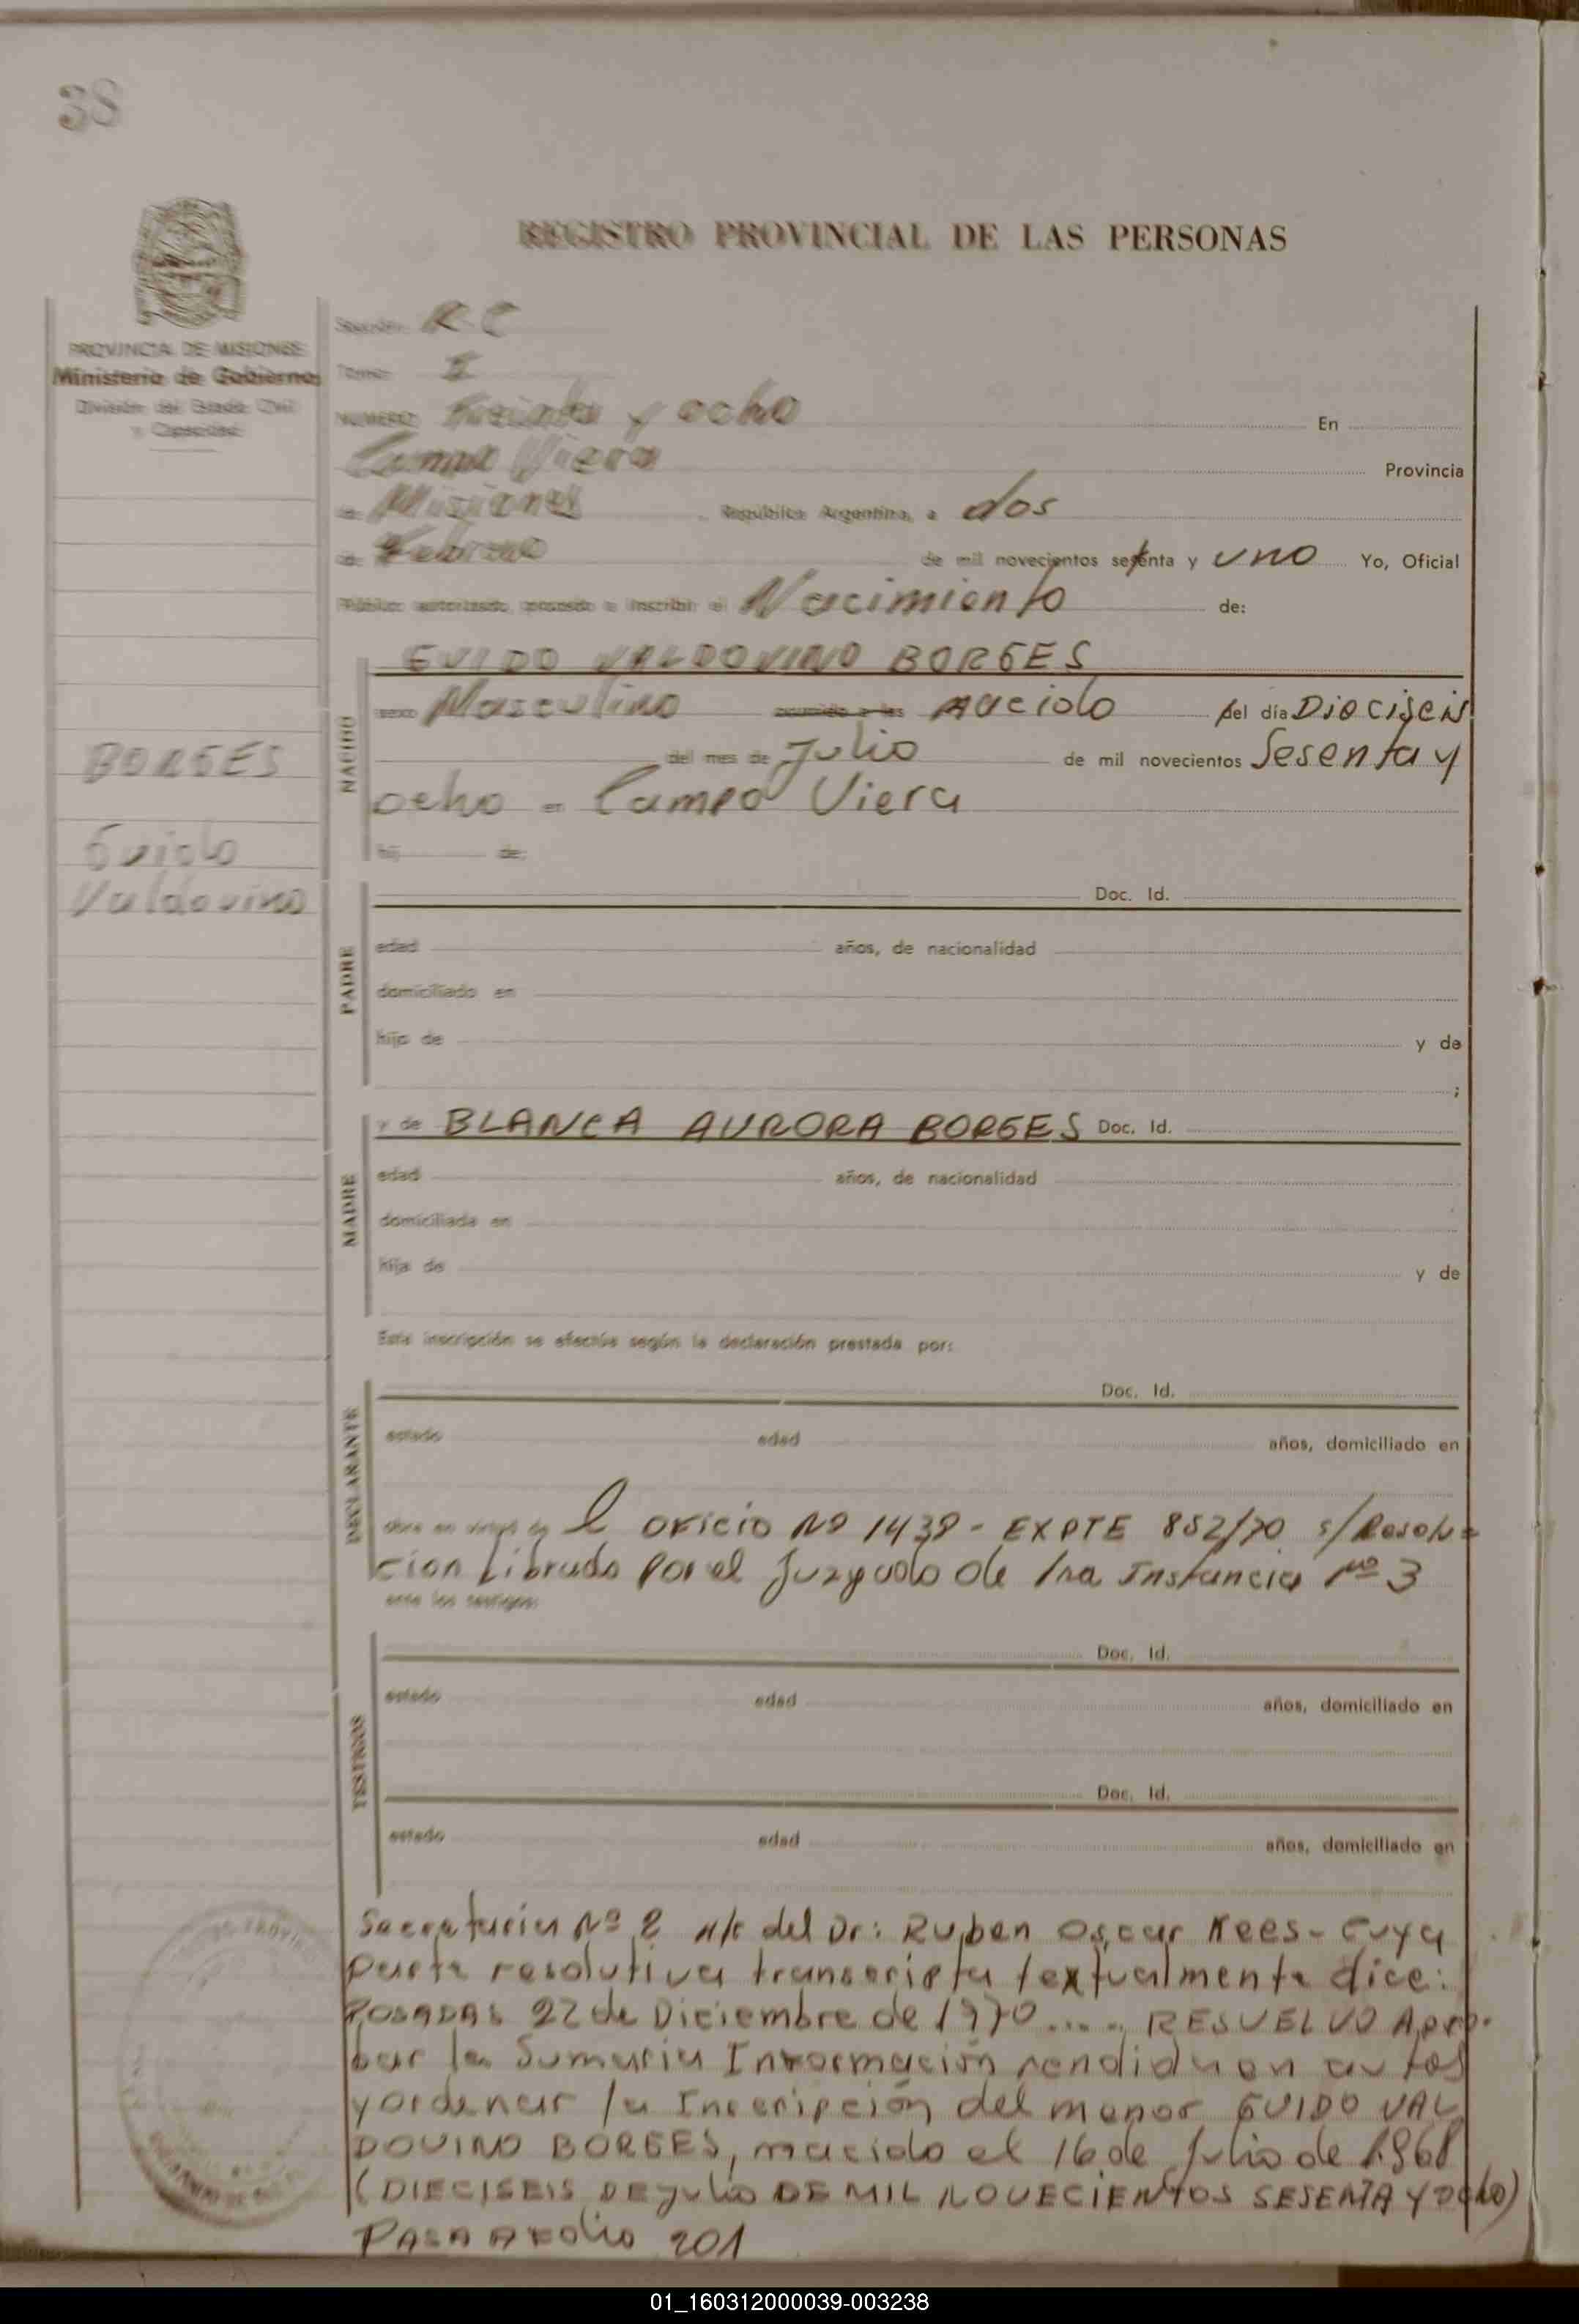 38
REGISTRO PROVINCIAL DE LAS PERSONAS
PROVINCIA DE MISIONES
Ministerio de Gobierno
División del Estado Civil
y Capacidad
Sección R.C
Tomo I
NUMERO Treinta y ocho En
Campo Viera Provincia
de Misiones, República Argentina, a dos
de Febrero de mil novecientos setenta y uno Yo, Oficial
Público autorizado, procedo a inscribir el Nacimiento de:
NACIDO
GUIDO VALDOVINO BORGES
sexo Masculino ocurrido a las nacido del día Dieciseis
del mes de Julio de mil novecientos Sesenta y
ocho en Campo Viera
hij de:
BORGES
Guido
Valdovino
PADRE
Doc. Id.
edad años, de nacionalidad
domiciliado en
hijo de y de
;
MADRE
y de BLANCA AURORA BORGES Doc. Id.
edad años, de nacionalidad
domiciliada en
hija de y de
Esta inscripción se efectúa según la declaración prestada por:
DECLARANTE
Doc. Id.
estado edad años, domiciliado en
obra en virtud de l oficio Nº 1439 - EXPTE 852/70 s/Resolu-
cion Librado Por el Juzgado de 1ra Instancia Nº 3
ante los testigos:
TESTIGOS
Doc. Id.
estado edad años, domiciliado en
Doc. Id.
estado edad años, domiciliado en
Secretaria Nº 2 a/c del Dr: Ruben Oscar Kees - Cuya
parte resolutiva transcripta textualmente dice:
POSADAS 22 de Diciembre de 1970 .... RESUELVO Apro-
bar la Sumaria Información rendida en autos
y ordenar la Inscripción del menor GUIDO VAL
DOVINO BORGES, nacido el 16 de Julio de 1.968
(DIECISEIS DE Julio DE MIL NOVECIENTOS SESENTA Y Ocho)
PASA A FOlio 201
01_160312000039-003238